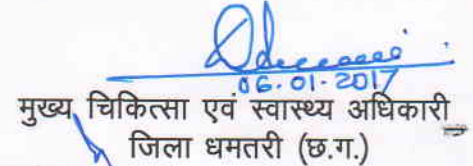 06.01.2017
मुख्य चिकित्सा एवं स्वास्थ्य अधिकारी
जिला धमतरी (छ.ग.)